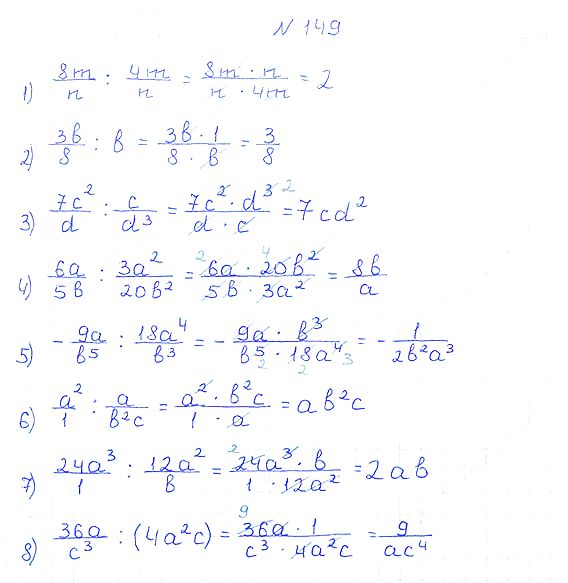 N 149
1) 8m/n : 4m/n = 8m · n / n · 4m = 2
2) 3в/8 : в = 3в · 1 / 8 · в = 3/8
3) 7c²/d : c/d³ = 7c² · d³ 2 / d · c = 7cd²
4) 6a/5в : 3a²/20в² = 2 6a · 4 20в² / 5в · 3a² = 8в/a
5) - 9a/в⁵ : 18a⁴/в³ = - 9a · в³ / в⁵ 2 · 18 2 a⁴ 3 = - 1/2в²a³
6) a²/1 : a/в²c = a² · в²c / 1 · a = aв²c
7) 24a³/1 : 12a²/в = 2 24a³ · в / 1 · 12a² = 2aв
8) 36a/c³ : (4a²c) = 9 36a · 1 / c³ · 4a²c = 9/ac⁴